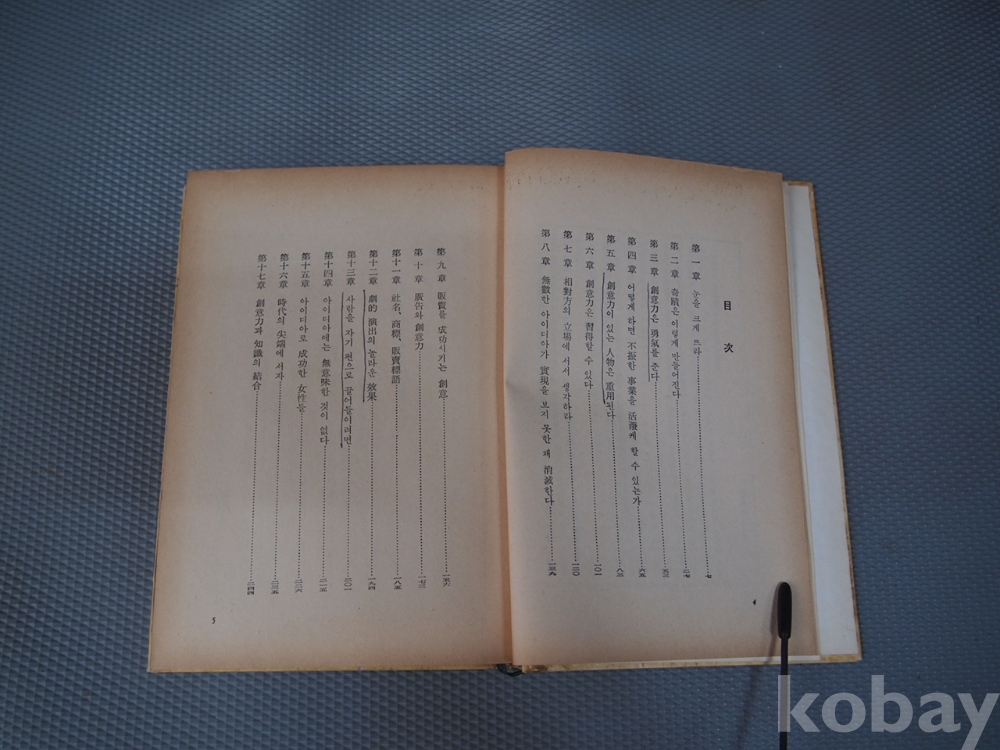 目次
第一章 눈을 크게 뜨라 七
第二章 奇蹟은 이렇게 만들어진다 二七
第三章 創意力은 勇氣를 준다 五三
第四章 어떻게 하면 不振한 事業을 活潑케 할 수 있는가 六五
第五章 創意力이 있는 人物은 重用된다 八三
第六章 創意力은 習得할 수 있다 一〇一
第七章 相對方의 立場에 서서 생각하라 一二〇
第八章 無數한 아이디아가 實現을 보기 못한 채 消滅한다 一三九
4
第九章 販賣를 成功시키는 創意 一五六
第十章 廣告와 創意力 一七三
第十一章 社名、商標、販賣標語 一八五
第十二章 劇的 演出의 놀라운 效果 一九四
第十三章 사람을 자기 편으로 끌어들이려면 二〇二
第十四章 아이디아에는 無意味한 것이 없다 二一五
第十五章 아이디아로 成功한 女性들 二二六
第十六章 時代의 尖端에 서자 二三五
第十七章 創意力과 知識의 結合 二四四
5
kobay